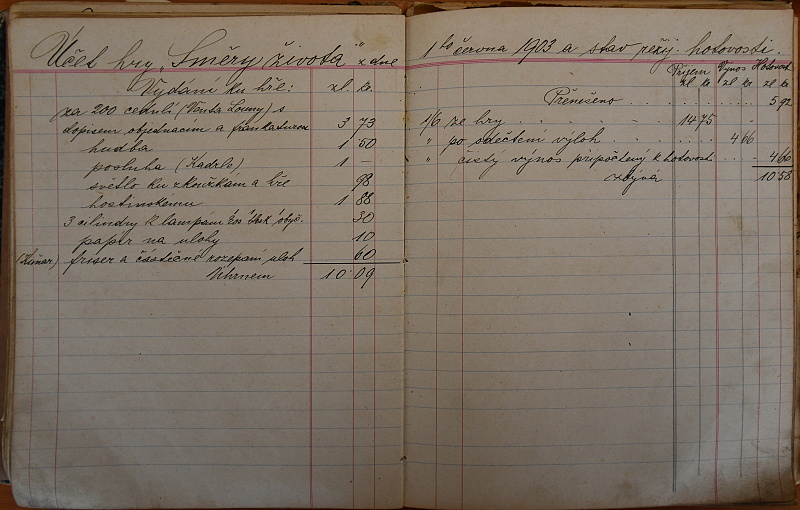 Účet hry „Směry života" z dne
Vydání ku hře: zl. kr.
za 200 cedulí (Venta Louny) s
dopisem objednacím a frankaturou 3 73
hudba 1 50
posluha (Kadrle) 1 —
světlo ku zkouškám a hře 98
hostinskému 1 88
3 cilindry k lampám obyč. 30
papír na úlohy 10
friser a částečné rozepsání úloh 60
Úhrnem 10 09
1ho června 1903 a stav režij. hotovosti.
Příjem Výnos Hotovost
zl kr zl kr zl kr
Přenešeno 5 92
1/6 ze hry 14 75
" po sdečtení výloh 4 66
" čistý výnos připočtený k hotovosti 4 66
zbývá 10 58